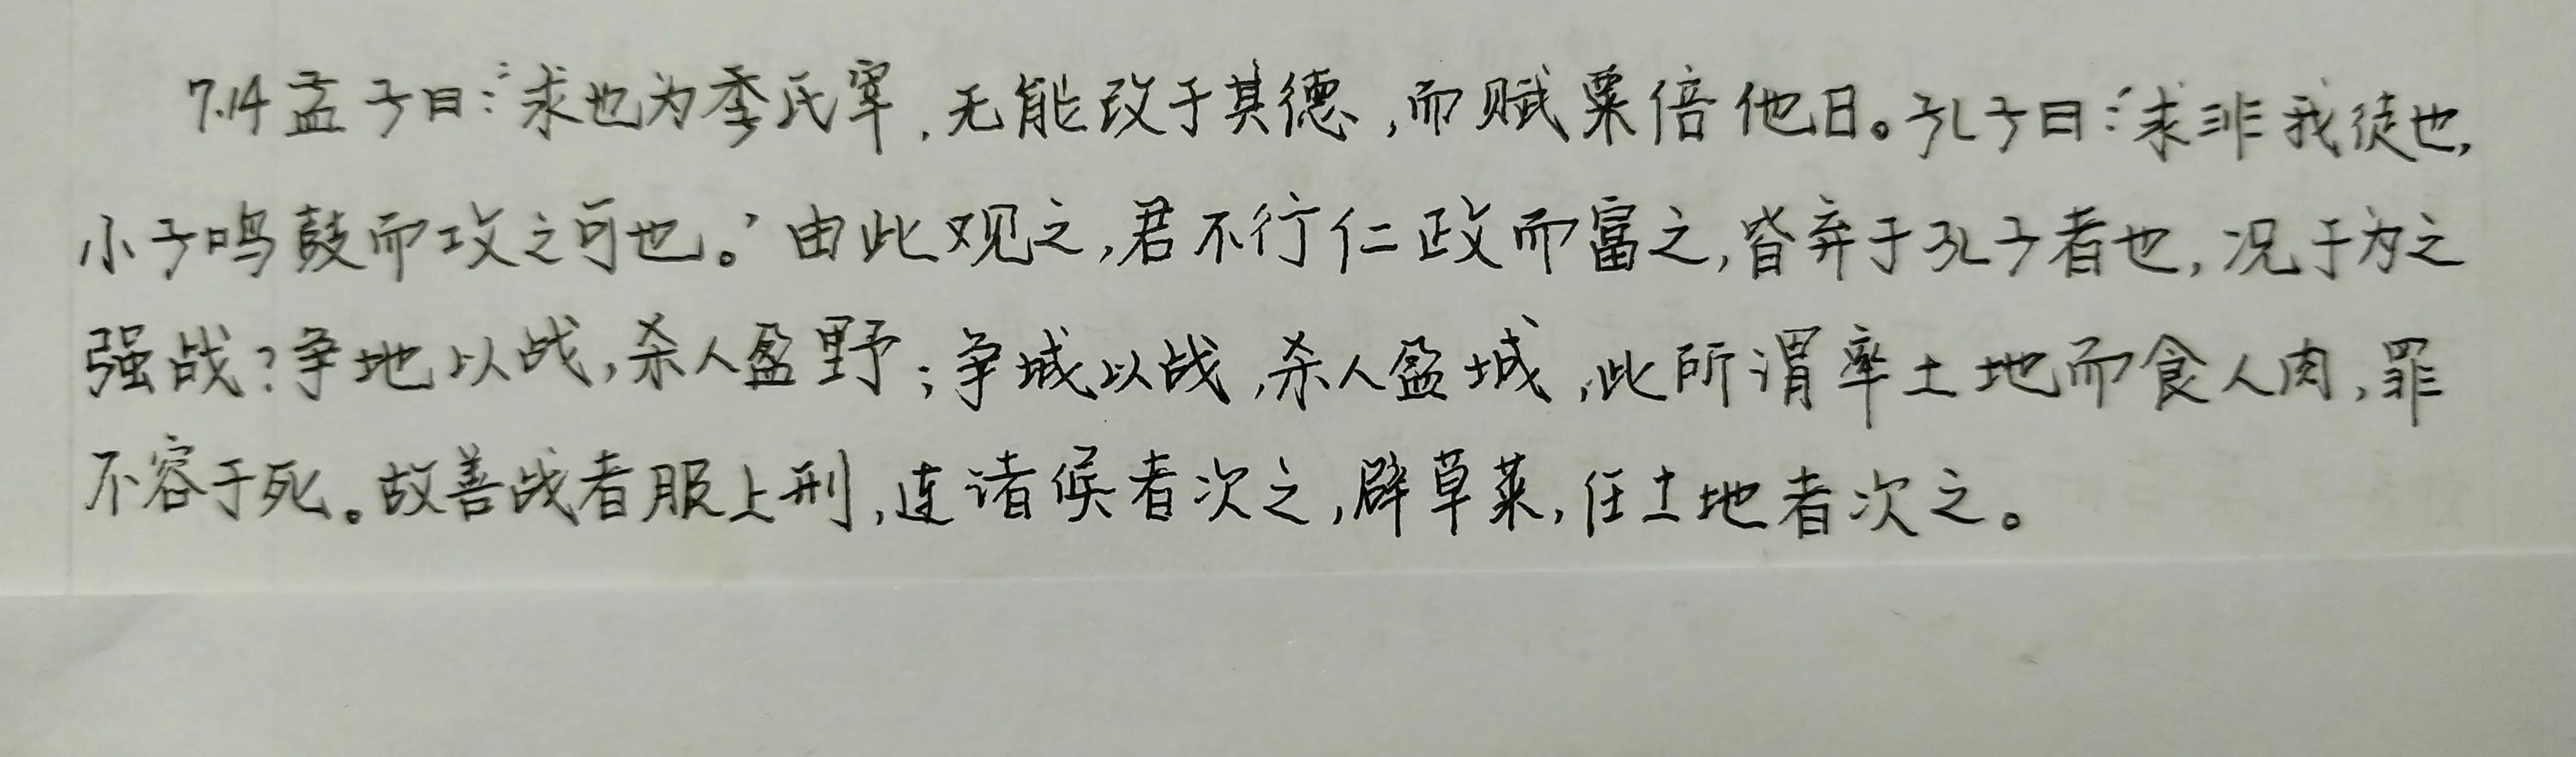 7.14 孟子曰:“求也为季氏宰,无能改于其德,而赋粟倍他日。孔子曰:‘求非我徒也,
小子鸣鼓而攻之可也。’由此观之,君不行仁政而富之,皆弃于孔子者也,况于为之
强战?争地以战,杀人盈野;争城以战,杀人盈城,此所谓率土地而食人肉,罪
不容于死。故善战者服上刑,连诸侯者次之,辟草莱,任土地者次之。